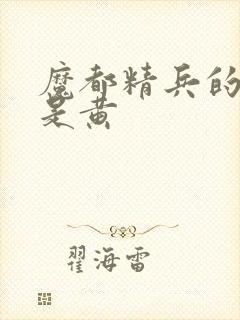 魔都精兵的
是黄
翟海雷